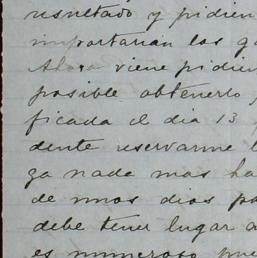 resultado y pidien
importarian los g
Ahora viene pidien
posible obtenerlo
ficada el dia 13
dente reservarme l
ga nada mas ha
de unos dias pa
debe tener lugar a
es numeroso pue